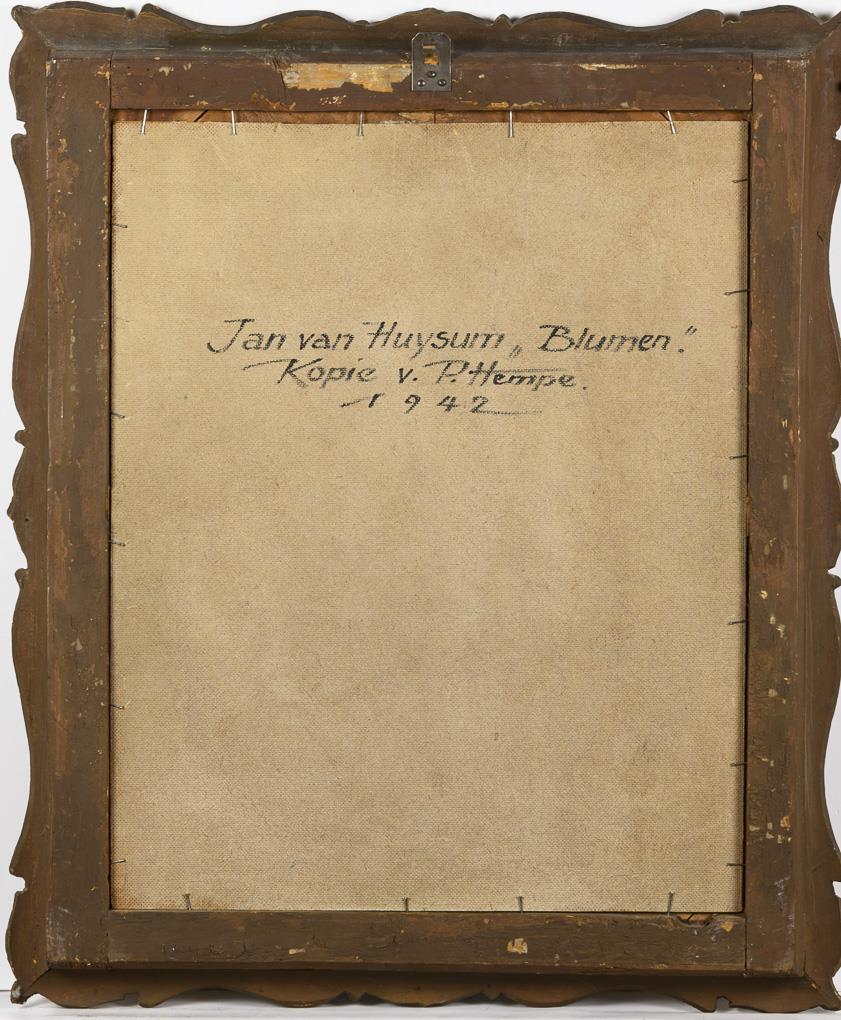 Jan van Huysum „Blumen.“
Kopie v. P. Hempe.
1942